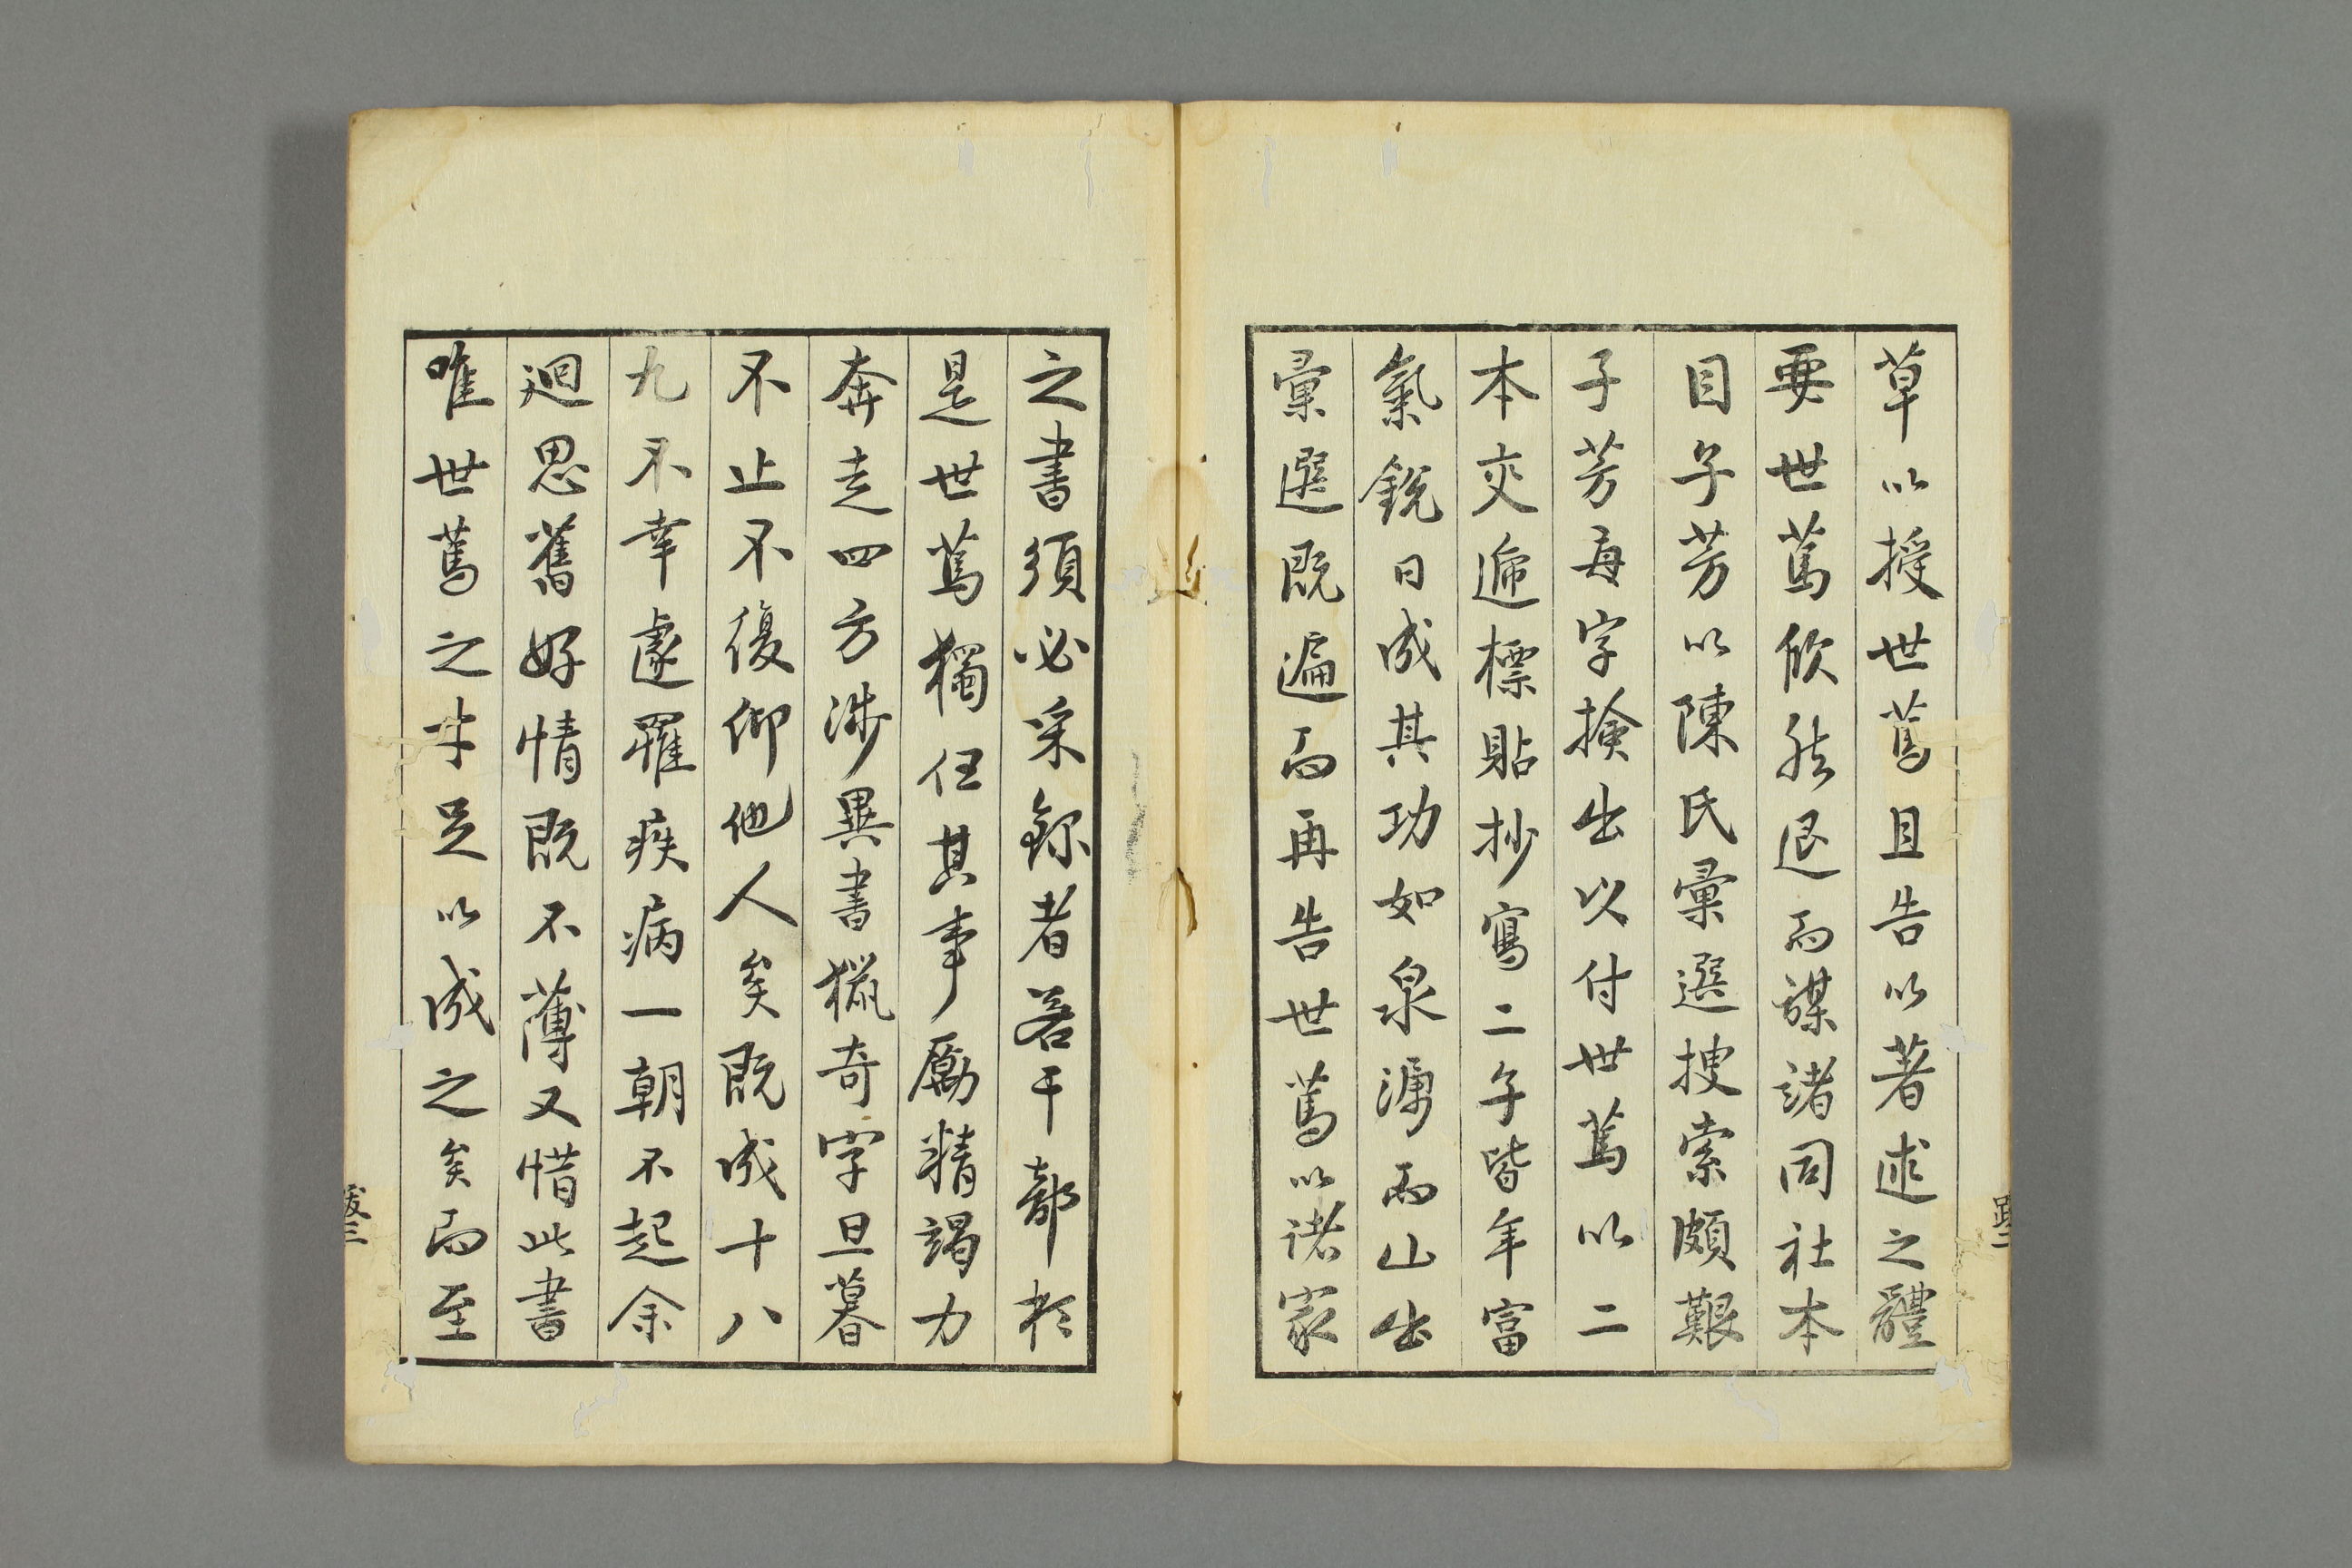 草以授世篤且告以著述之體
要世篤欣然退而謀諸同社本
目子芳以陳氏彙選搜索頗艱
子芳每字撿出以付世篤以二
本夾遞標貼抄寫二子皆年富
氣銳日成其功如泉漏而山出
彙選既遍而再告世篤以諸家
之書須必采錄者若干部於
是世篤獨任其事勵精竭力
奔走四方涉異書獵奇字旦暮
不止不復仰他人矣既成十八
九不幸遽罹疾病一朝不起余
迴思舊好情既不薄又惜此書
唯世篤之才足以成之矣而至
跋二
跋三